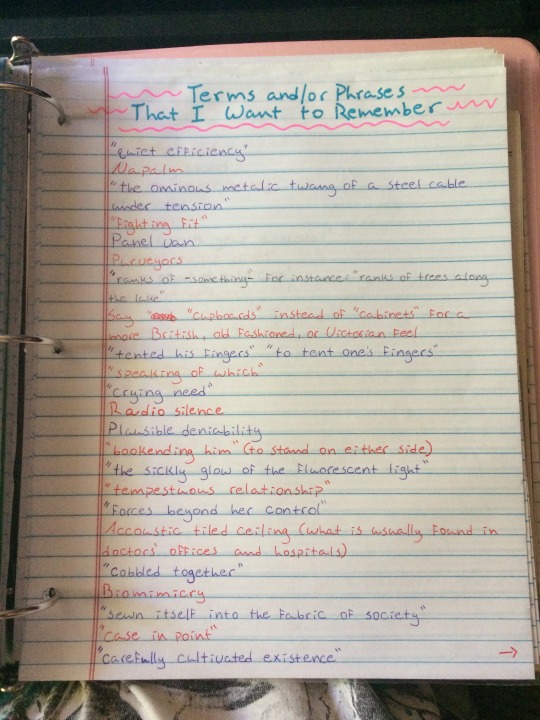 Terms and/or Phrases
That I Want to Remember
"quiet efficiency"
Napalm
"the ominous metalic twang of a steel cable
under tension"
"Fighting Fit"
Panel van
Purveyors
"ranks of -something-" For instance: "ranks of trees along
the lake"
Say "cupboards" instead of "cabinets" for a
more British, old fashioned, or Victorian feel
"tented his fingers" "to tent one's fingers"
"speaking of which"
"crying need"
Radio silence
Plausible deniability
"bookending him" (to stand on either side)
"the sickly glow of the fluorescent light"
"tempestuous relationship"
"Forces beyond her control"
Accoustic tiled ceiling (what is usually found in
doctors' offices and hospitals)
"Cobbled together"
Biomimicry
"sewn itself into the fabric of society"
"case in point"
"carefully cultivated existence" →